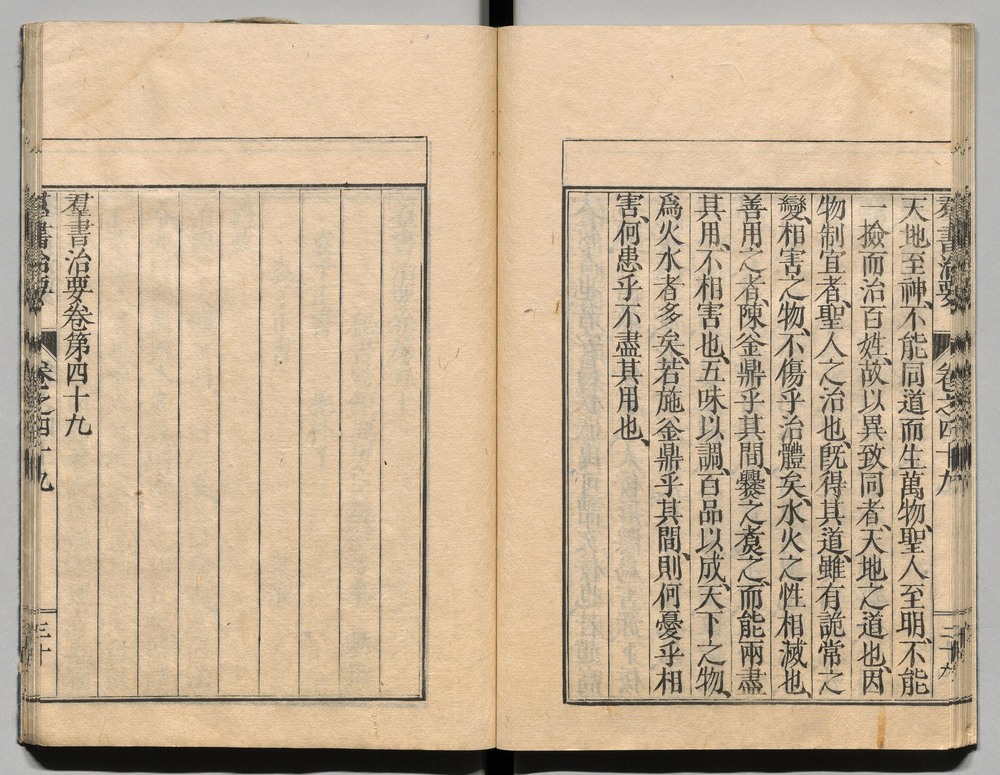 羣書治要
卷之四十九
二十九
天地至神、不能同道而生萬物、聖人至明、不能
一撿而治百姓、故以異致同者、天地之道也、因
物制宜者、聖人之治也、旣得其道、雖有詭常之
變、相害之物、不傷乎治體矣、水火之性相滅也、
善用之者、陳釜鼎乎其間、爨之煑之、而能兩盡
其用、不相害也、五味以調、百品以成、天下之物、
爲火水者多矣、若施釜鼎乎其間、則何憂乎相
害、何患乎不盡其用也、
羣書治要卷第四十九
羣書治要
卷之四十九
三十